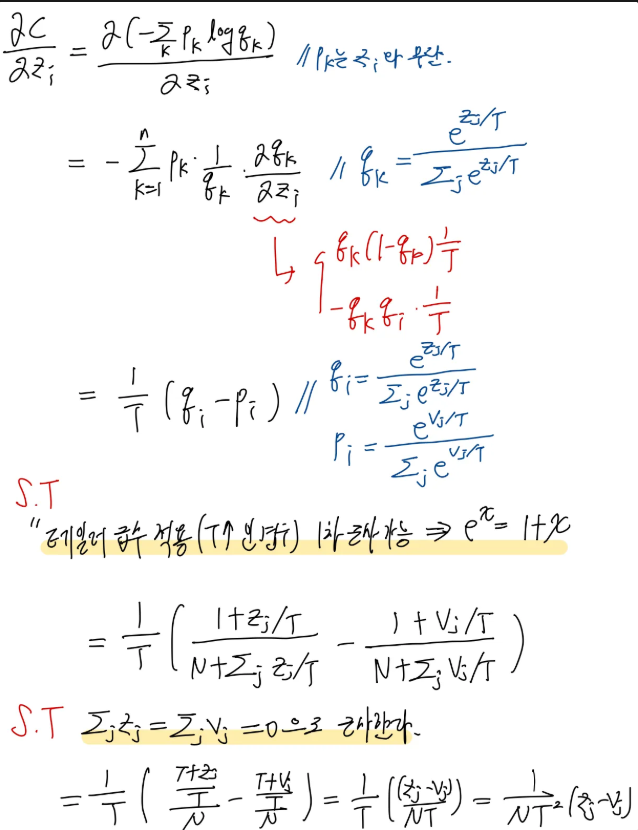 ∂C/∂z_i = ∂(-Σ_k P_k log q_k)/∂z_i // P_k는 z_i와 무관.
= -Σ_{k=1}^{n} P_k · 1/q_k · ∂q_k/∂z_i // q_k = e^{z_j/T}/Σ_j e^{z_j/T}
↳ q_k(1-q_k) 1/T
-q_k q_i · 1/T
= 1/T (q_i - p_i) // q_i = e^{z_j/T}/Σ_j e^{z_j/T}
P_i = e^{v_j/T}/Σ_j e^{v_j/T}
S.T
"테일러 급수 적용 (T↑ 인 경우) 1차 근사 가능 ⇒ e^x = 1+x
= 1/T ( (1+z_j/T)/(N+Σ_j z_j/T) - (1+v_j/T)/(N+Σ_j v_j/T) )
S.T Σ_j z_j = Σ_j v_j = 0 으로 근사한다.
= 1/T ( ((T+z_j)/T)/N - ((T+v_j)/T)/N ) = 1/T ( (z_j-v_j)/NT ) = 1/NT² (z_j-v_j)